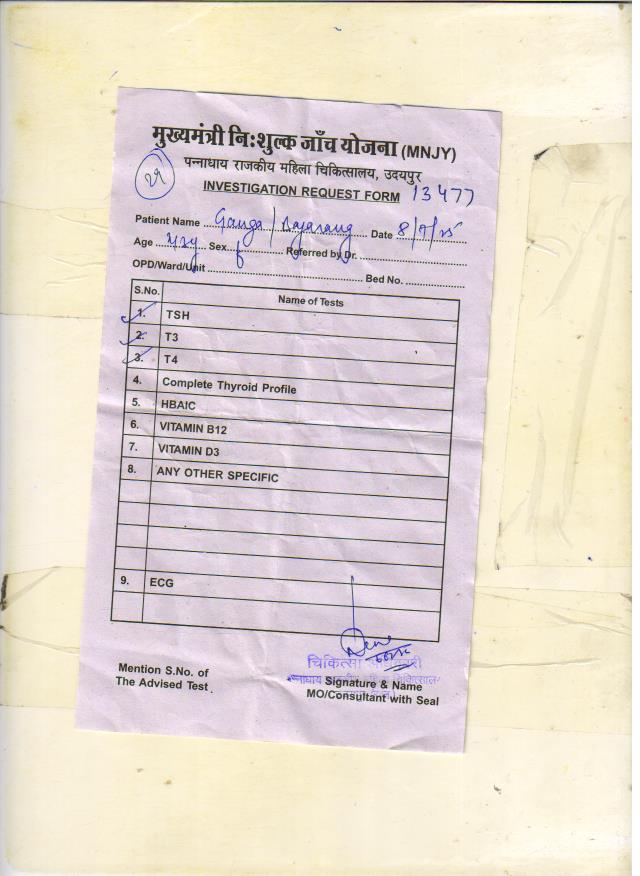 मुख्यमंत्री नि:शुल्क जाँच योजना (MNJY)
पन्नाधाय राजकीय महिला चिकित्सालय, उदयपुर
INVESTIGATION REQUEST FORM 13477
Patient Name Ganga / Bajarang Date 8/7/25
Age Sex f Referred by Dr.
OPD/Ward/Unit Bed No.
S.No. Name of Tests
1. TSH
2. T3
3. T4
4. Complete Thyroid Profile
5. HBAIC
6. VITAMIN B12
7. VITAMIN D3
8. ANY OTHER SPECIFIC
9. ECG
Mention S.No. of
The Advised Test
चिकित्सा
पन्नाधाय
Signature & Name
MO/Consultant with Seal